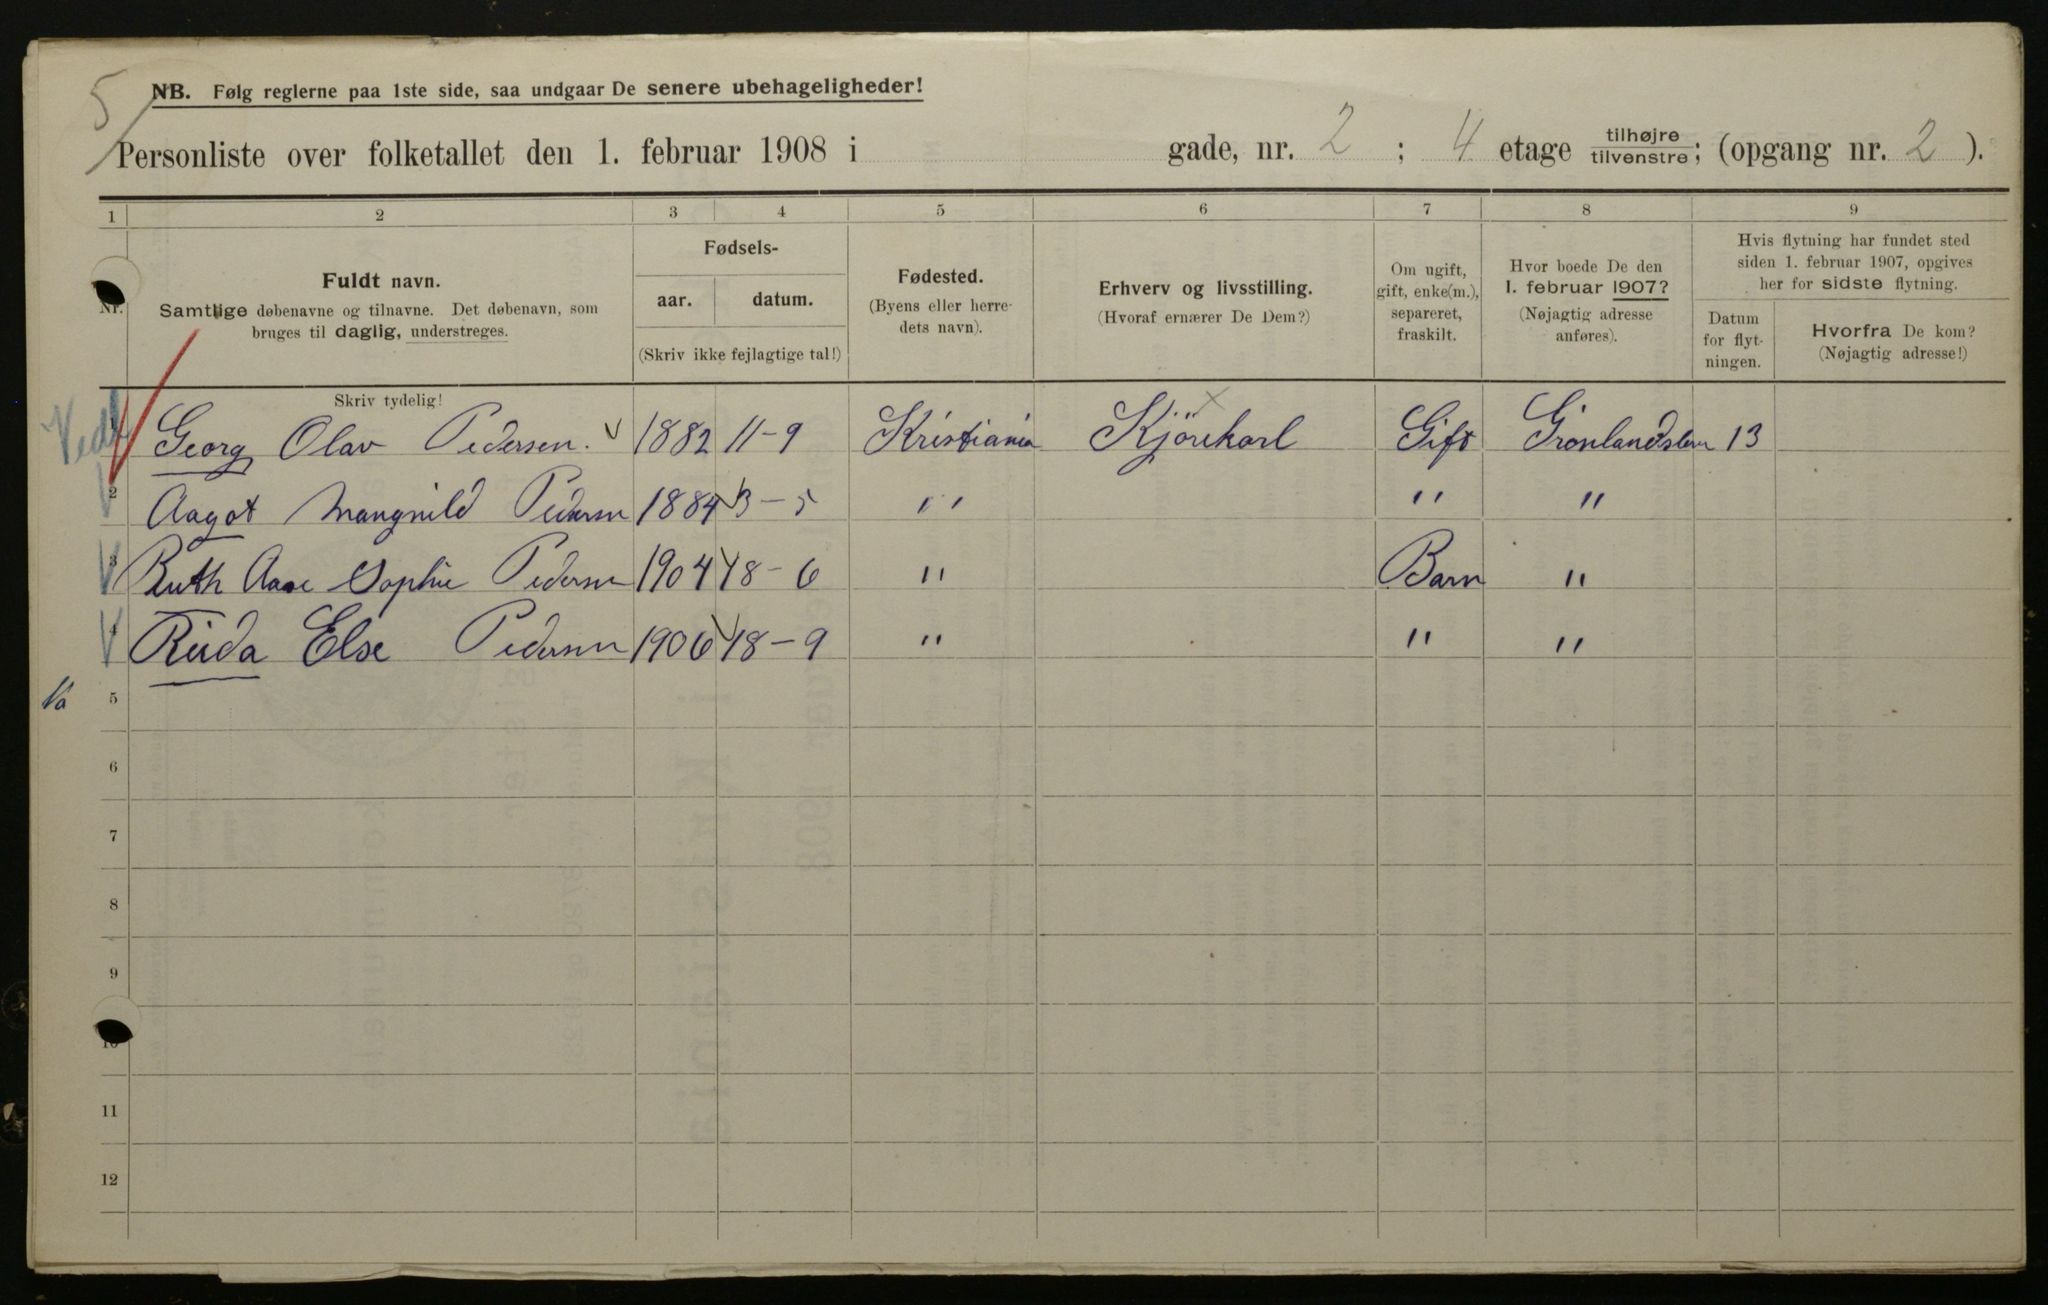 5
NB. Følg reglerne paa 1ste side, saa undgaar De senere ubehageligheder!
Personliste over folketallet den 1. februar 1908 i gade, nr. 2 ; 4 etage tilhøjre/tilvenstre; (opgang nr. 2 ).
1 2 3 4 5 6 7 8 9
Nr.
Fuldt navn.
Samtlige døbenavne og tilnavne. Det døbenavn, som
bruges til daglig, understreges.
Skriv tydelig!
Fødsels-
aar. datum.
(Skriv ikke fejlagtige tal!)
Fødested.
(Byens eller herre-
dets navn).
Erhverv og livsstilling.
(Hvoraf ernærer De Dem?)
Om ugift,
gift, enke(m.),
separeret,
fraskilt.
Hvor boede De den
1. februar 1907?
(Nøjagtig adresse
anføres).
Hvis flytning har fundet sted
siden 1. februar 1907, opgives
her for sidste flytning.
Datum
for flyt-
ningen.
Hvorfra De kom?
(Nøjagtig adresse!)
1 Georg Olav Pedersen. 1882 11-9 Kristiania Kjörekarl Gift Grønlandsleir 13
2 Aagot Pedersen 1884 3-5 " " "
3 Ruth Aase Sophie Pedersen 1904 18-6 " Barn "
4 Else Pedersen 1906 18-9 " " "
5
6
7
8
9
10
11
12